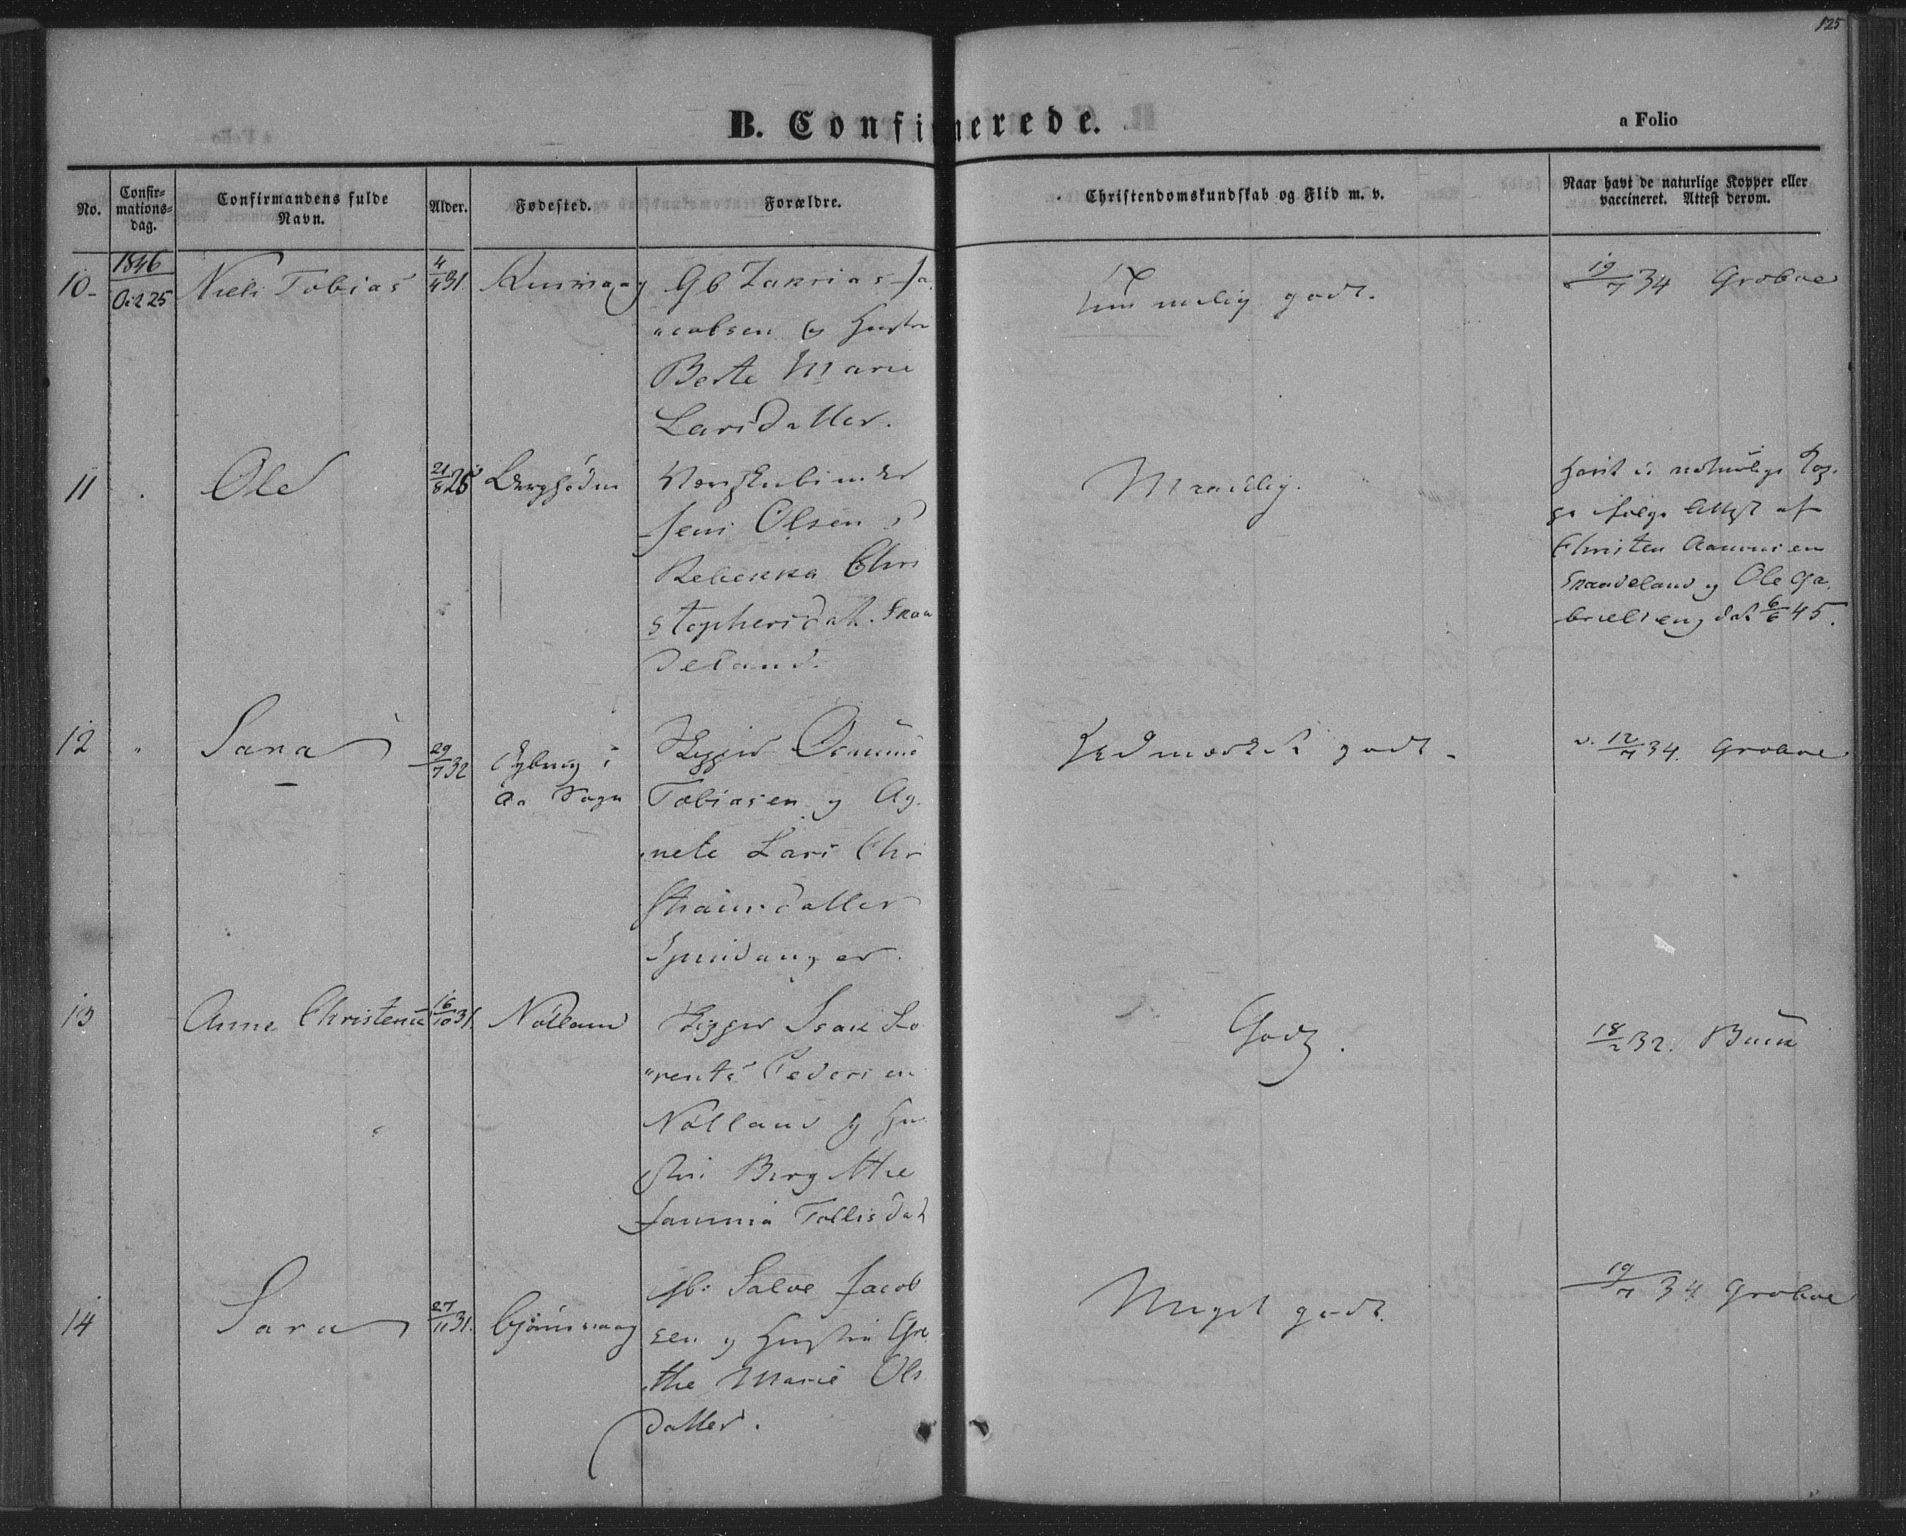 125
B. Confirmerede.
a Folio
No.
Confir-
mations-
dag.
Confirmandens fulde
Navn.
Alder.
Fødested.
Forældre.
Christendomskundskab og Flid m. v.
Naar havt de naturlige Kopper eller
vaccineret. Attest derom.
10
1846
Oct 25
Niels Tobias
4/4 31
Gb Zakrias Ja
cobsen og Hustru
Berte Marie
Larsdatter.
godt.
19/7 34 Groboe
11
Ole
21/8 25
Jens Olsen
Rebekka Chri
stophersdat.
deland.
Maadelig.
havt de naturlige Kop-
pe følge Attest af
Christen Aanensen
Fraadeland og Ole Ga
brielsen dat 6/6 45.
12
Sara
29/7 32
i
Aa Sogn
Skipper Osmund
Tobiasen og Ag
nete Lars Chri
stiansdatter
Spindanger.
Udmærket godt
v. 12/7 34. Groboe
13
Anne Christense
16/10 31
Nolland
Skipper Isak Lo
rents Pedersen
Nolland og Hu
stru Birgitthe
Jammia Tollisdat
Godt.
18/2 32. Buch
14
Sara
27/11 31.
Gb: Salve Jacob
sen og Hustru Gre
the Marie Ols
datter.
Meget godt.
19/7 34 Groboe